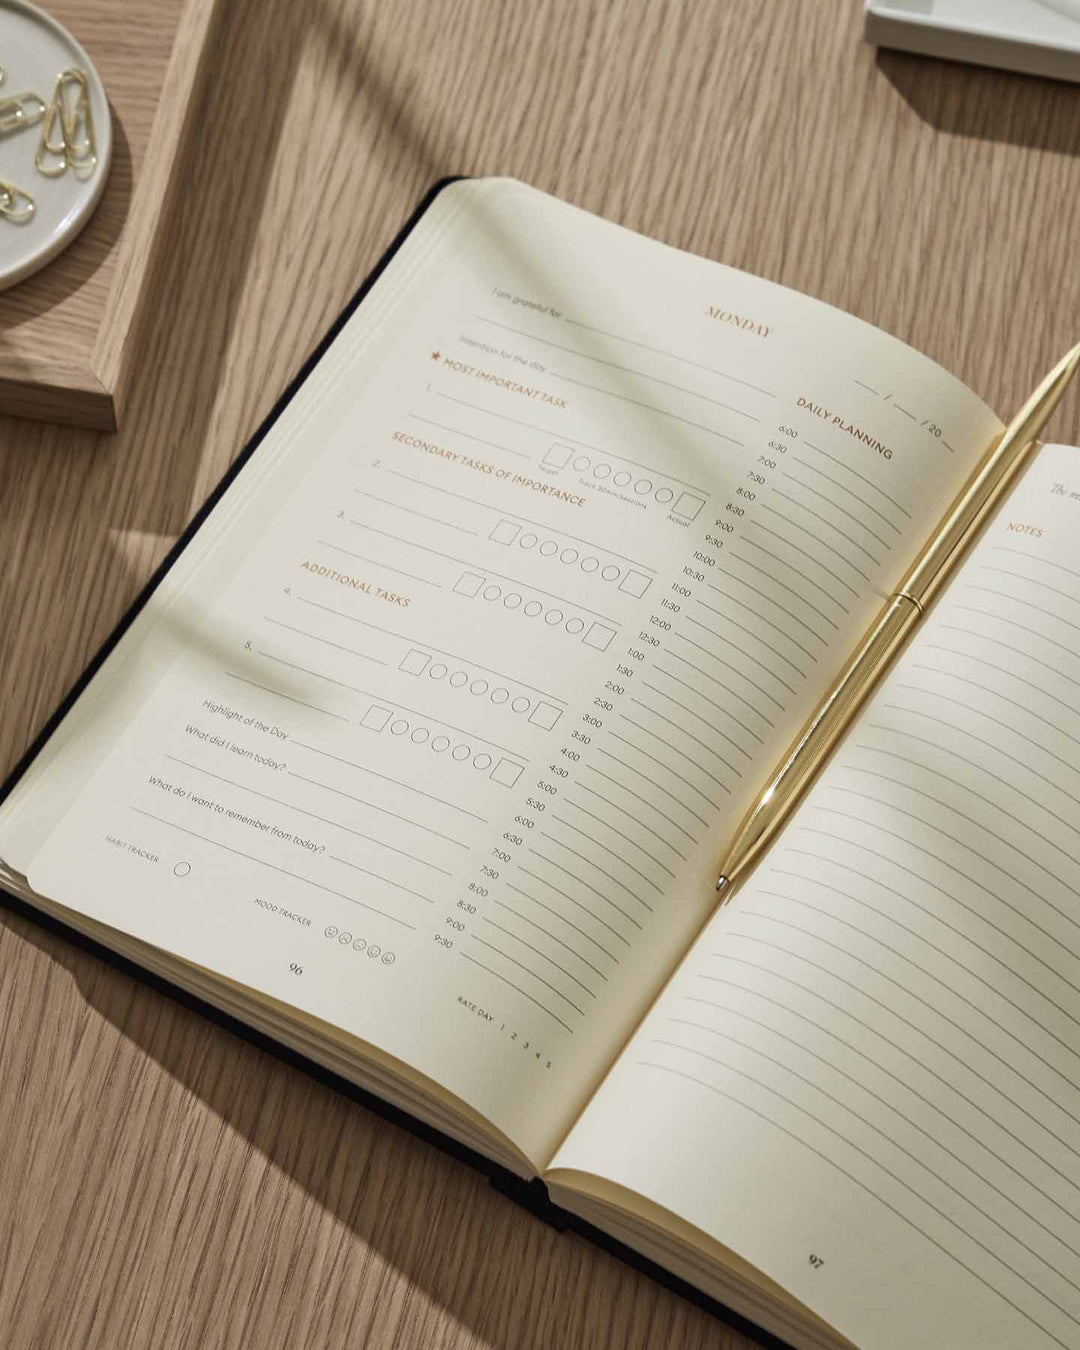 MONDAY
I am grateful for
Intention for the day
★ MOST IMPORTANT TASK
1.
Target Track 30min/sessions Actual
SECONDARY TASKS OF IMPORTANCE
2.
3.
ADDITIONAL TASKS
4.
5.
Highlight of the Day
What did I learn today?
What do I want to remember from today?
HABIT TRACKER
MOOD TRACKER
96
/ / 20
DAILY PLANNING
6:00
6:30
7:00
7:30
8:00
8:30
9:00
9:30
10:00
10:30
11:00
11:30
12:00
12:30
1:00
1:30
2:00
2:30
3:00
3:30
4:00
4:30
5:00
5:30
6:00
6:30
7:00
7:30
8:00
8:30
9:00
9:30
RATE DAY 1 2 3 4 5
The
NOTES
97